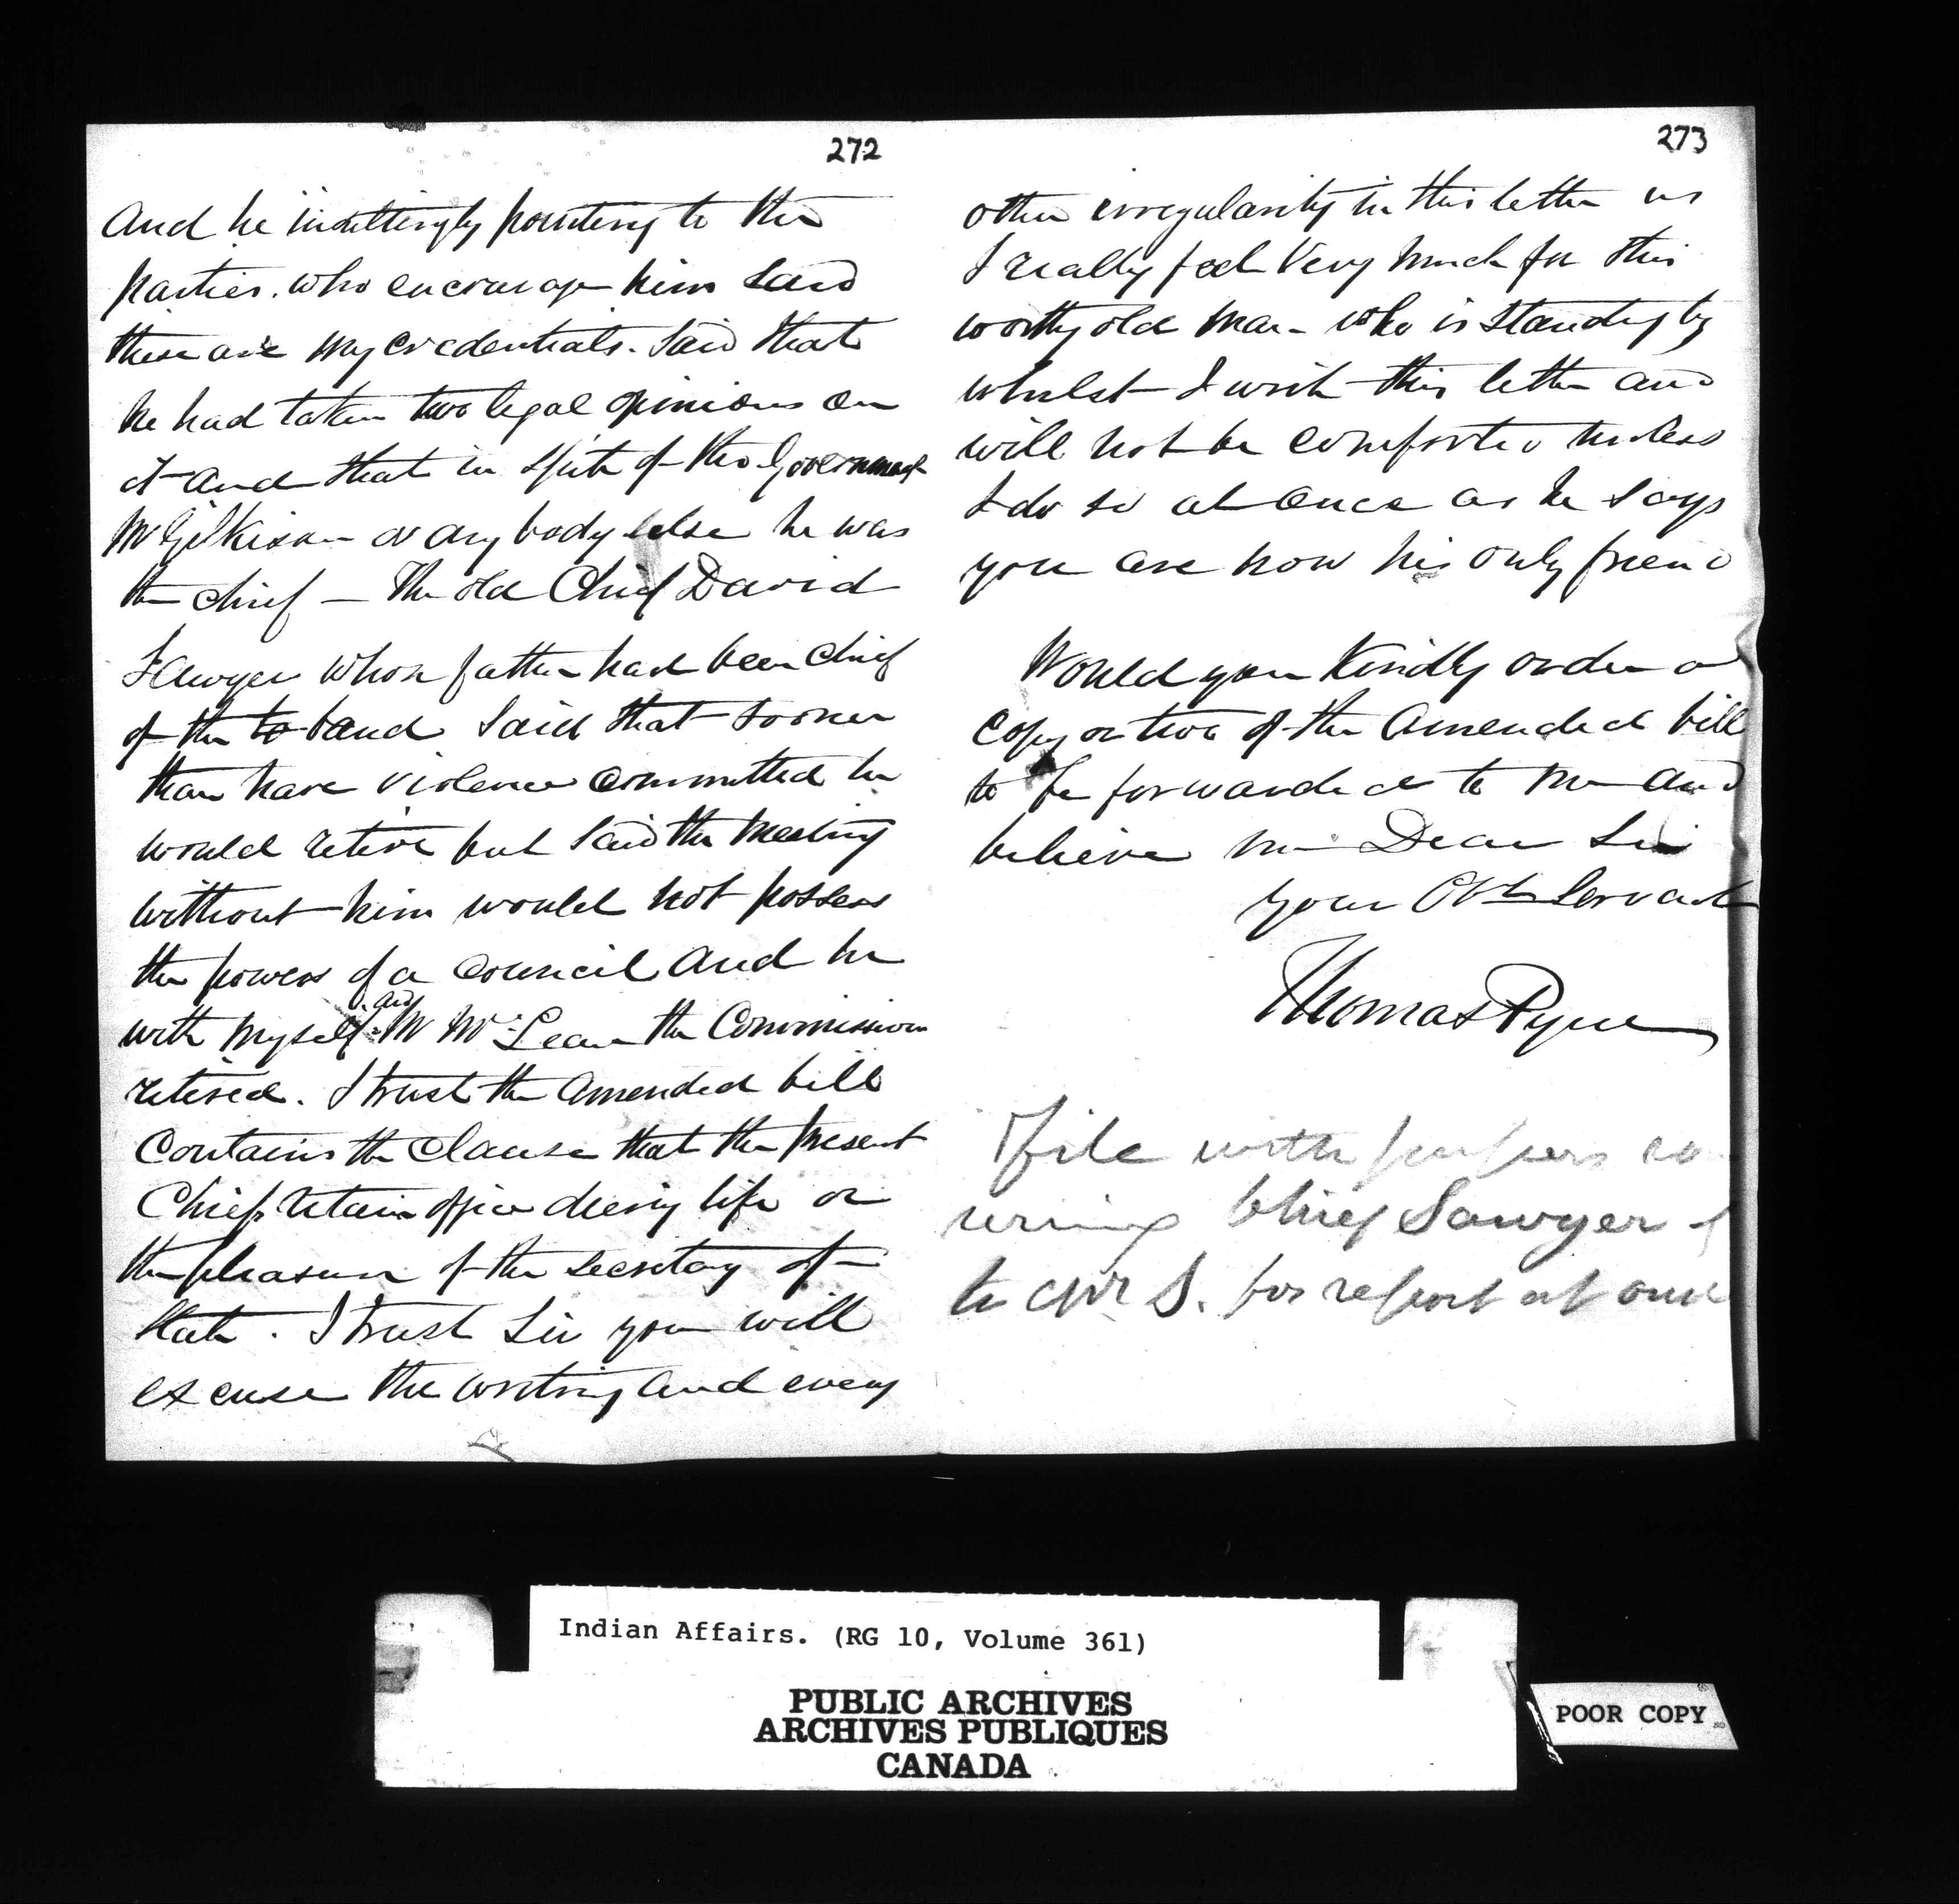 272
And he insultingly pointing to the
parties. who encourage him said
these are my credentials. Said that
he had taken two legal opinions on
it and that in spite of the Government
Mr Gilkison or any body else he was
the chief — The old Chief David
Sawyer whose father had been chief
of the to band said that sooner
than have violence committed he
would retire but said the meeting
without him would not possess
the powers of a council and he
with myself and Mr McLean the Commission
retired. I trust the amended bill
Contains the clause that the present
Chiefs retain office during life or
the pleasure of the Secretary of
State. I trust Sir you will
excuse the writing and every
273
other irregularity in this letter as
I really feel Very much for this
worthy old man who is standing by
whilst I write this letter and
will not be comforted unless
I do so at once as he says
you are now his only friend
Would you Kindly order a
copy or two of the Amended bill
to be forwarded to me and
believe me Dear Sir
your Obt Servant
Thomas Pyne
File with papers co
Chief Sawyer
to S. for report at once
Indian Affairs. (RG 10, Volume 361)
PUBLIC ARCHIVES
ARCHIVES PUBLIQUES
CANADA
POOR COPY